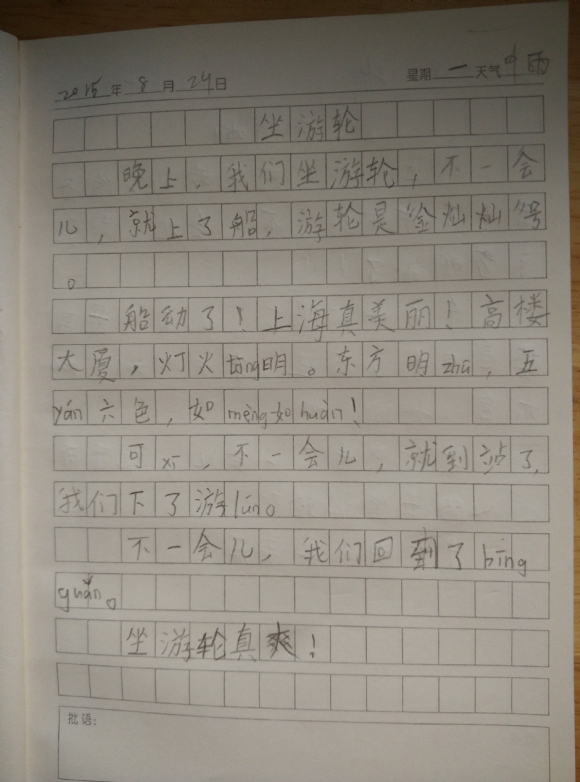 2015年8月24日 星期一天气中雨
坐游轮
晚上，我们坐游轮，不一会
儿，就上了船，游轮是金灿灿号
。
船动了！上海真美丽！高楼
大厦，灯火tōng明。东方明zhū，五
yán六色，如mèng如huàn！
可xī，不一会儿，就到站了，
我们下了游lún。
不一会儿，我们回到了bīng
guǎn。
坐游轮真爽！
批语：